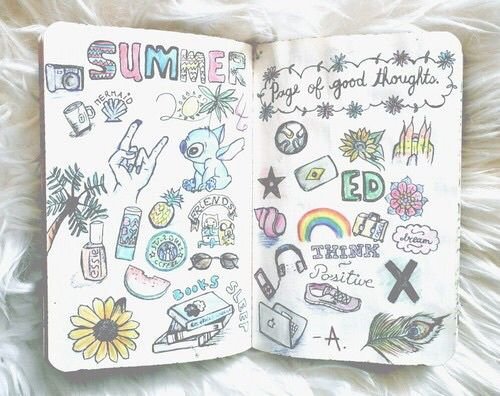 SUMMER
MERMAID
FRIENDS
essie
COFFEE
BOOKS
SLEEP
Page of good thoughts.
ED
dream
THINK
~
Positive
X
-A.